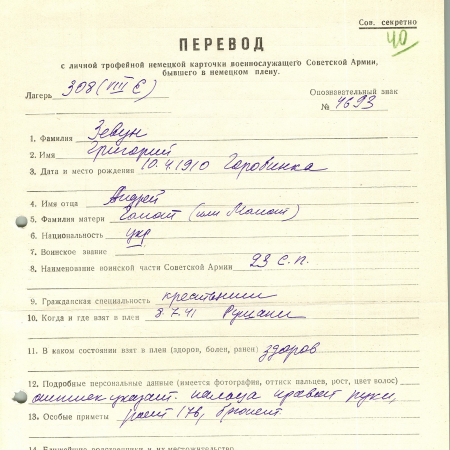 Сов. секретно
40
ПЕРЕВОД
с личной трофейной немецкой карточки военнослужащего Советской Армии,
бывшего в немецком плену.
Лагерь 308 (VIII E)
Опознавательный знак
№ 4693
1. Фамилия Зевун
2. Имя Григорий
3. Дата и место рождения 10.4.1910 Горовинка
4. Имя отца Андрей
5. Фамилия матери (или Момот)
6. Национальность укр
7. Воинское звание —
8. Наименование воинской части Советской Армии 23 с.п.
9. Гражданская специальность крестьянин
10. Когда и где взят в плен 8.7.41
11. В каком состоянии взят в плен (здоров, болен, ранен) здоров
12. Подробные персональные данные (имеется фотография, оттиск пальцев, рост, цвет волос)
оттиск указат. пальца правой руки,
13. Особые приметы рост 176, брюнет
14. Ближайшие родственники и их местожительство